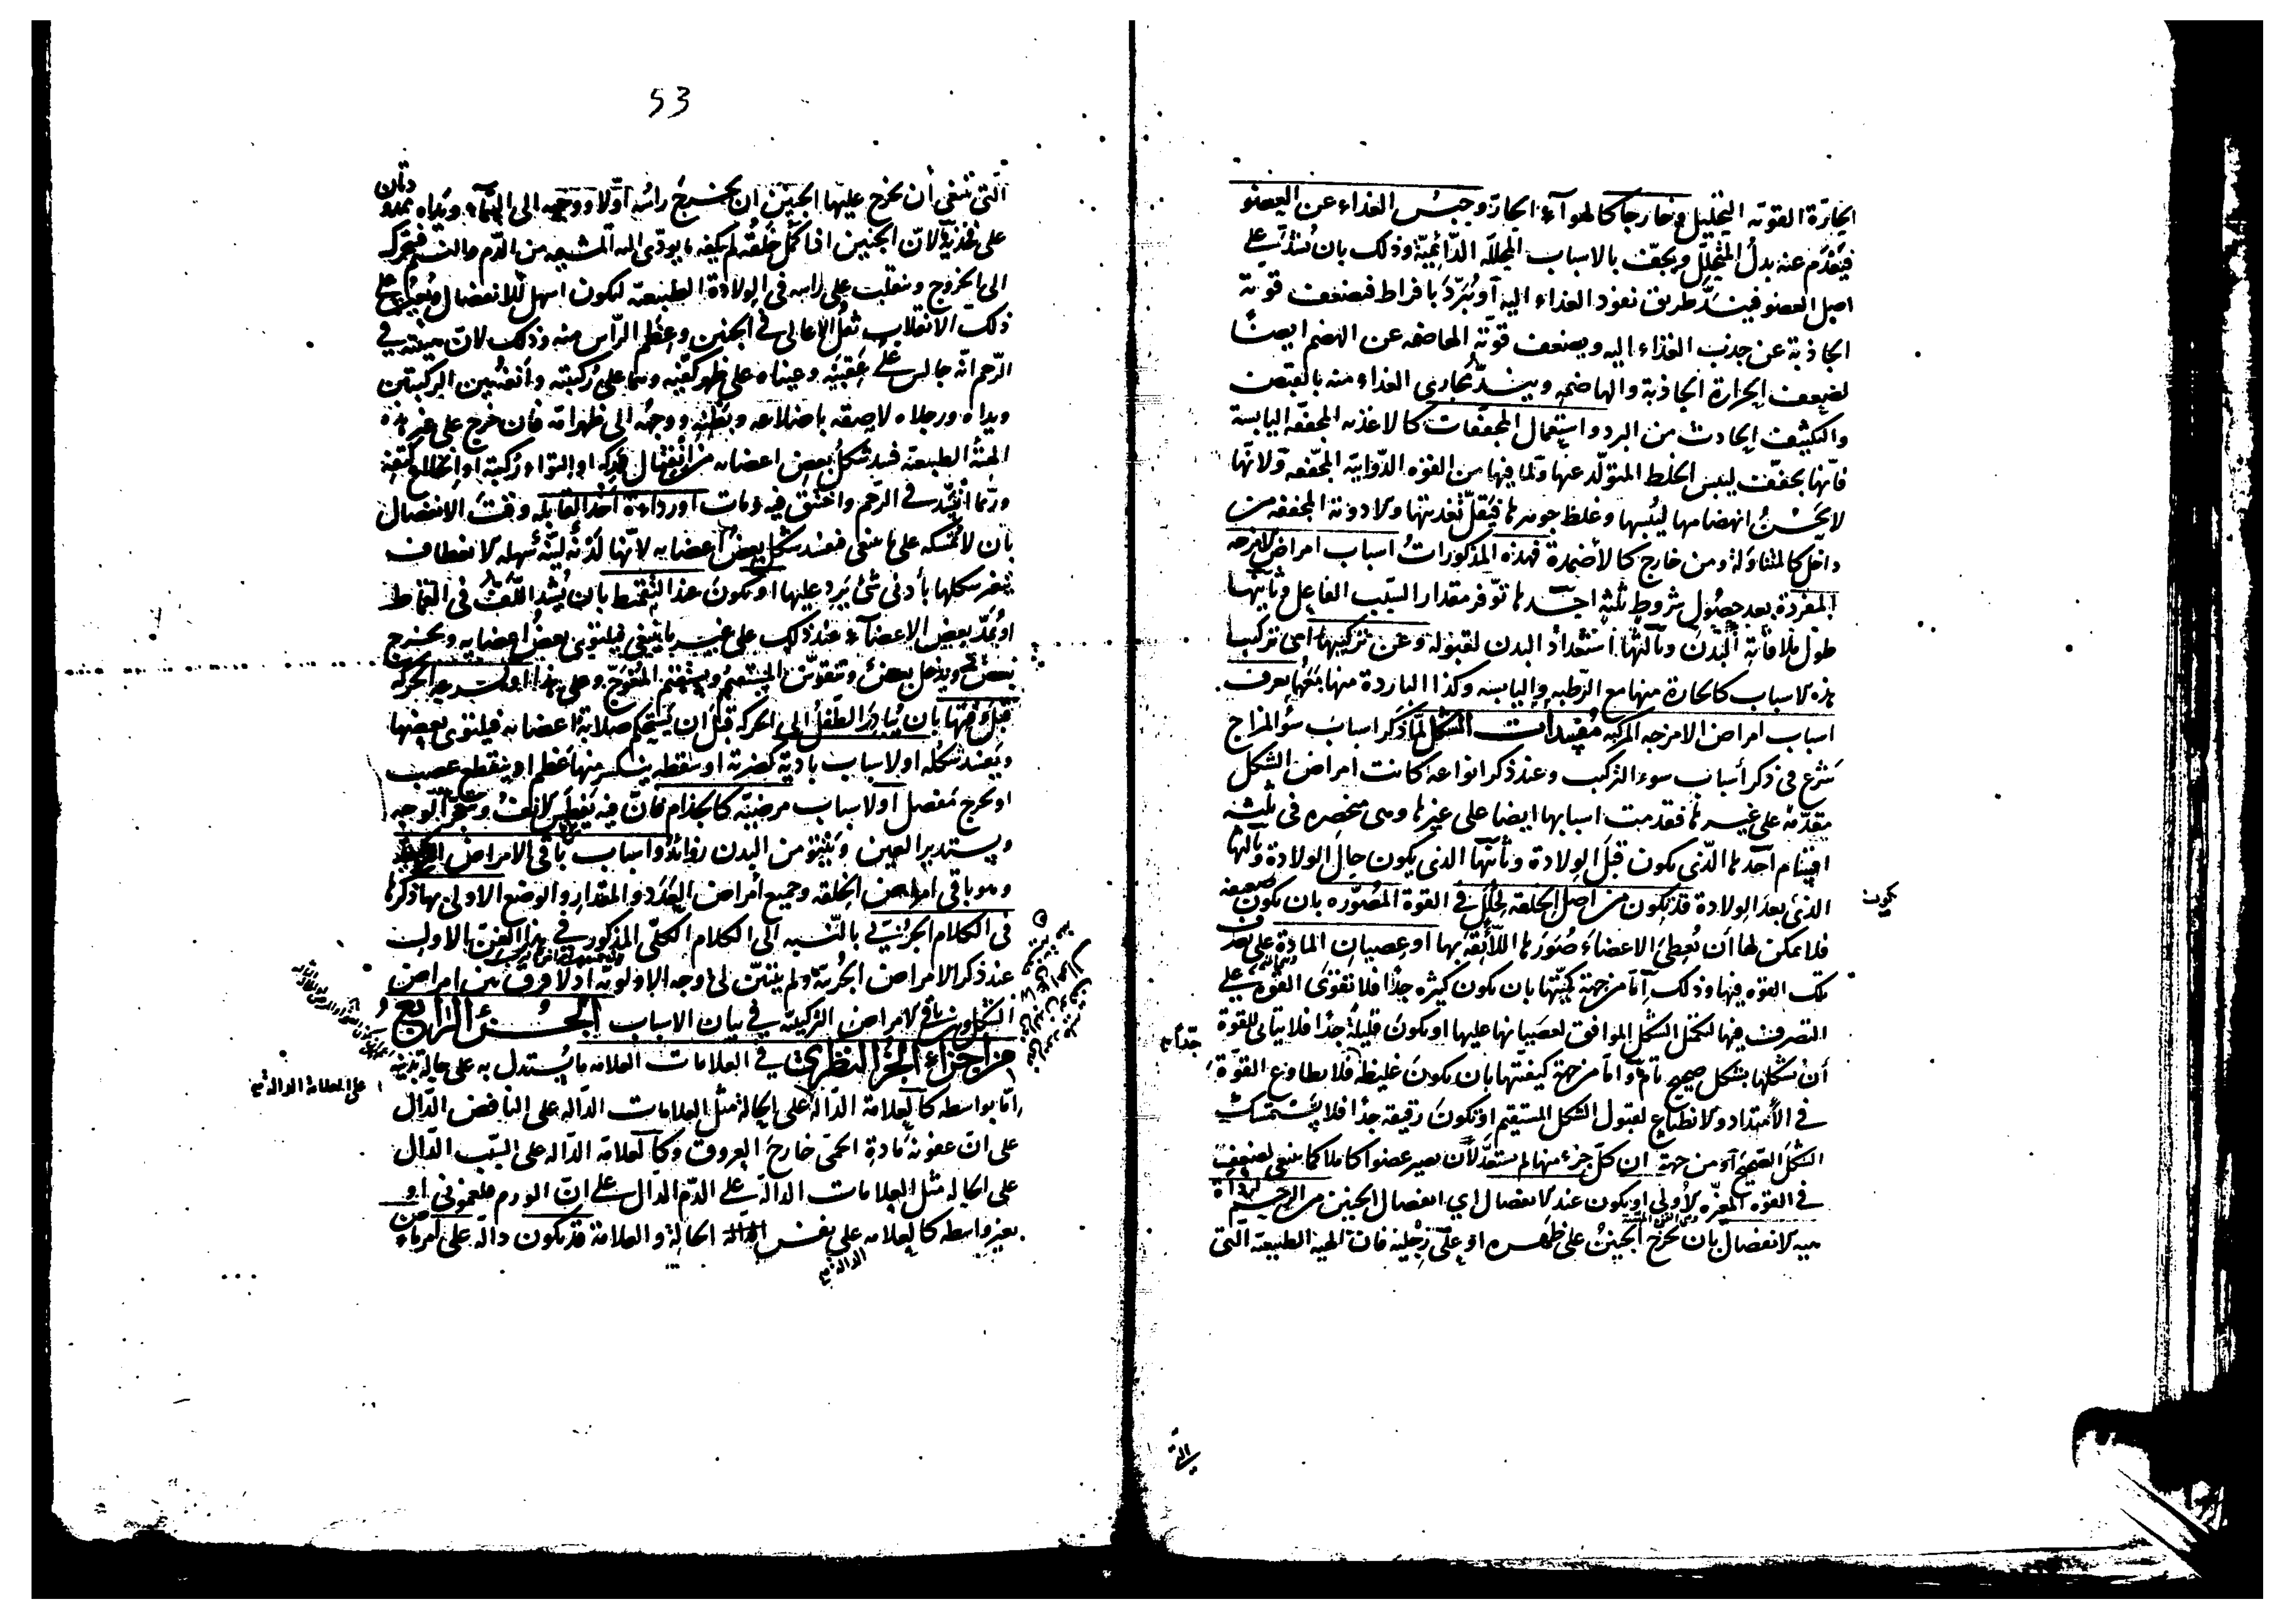 الحارّة القوية التحليل وخارجا كالهوآء الحارّ وحبسُ الغذاء عن العضو
فيَعْدَم عنه بدلُ المتحلّل ويجفّ بالاسباب المحلّله وذلك بان يُشدّ على
اصل العضو فينسدّ طريق نفوذ الغذاء اليه او يُبرّدَ بافراط فيضعف قوته
الجاذبة عن جذب الغذاء اليه ويضعف قوّته الهاضمه عن الهضم ايضًا
لضعف الحرارة الجاذبة والهاضمه وينسدّ مجاري الغذاء منه بالقبض
والتكثيف الحادث من البرد واستعمال المجففات كالاغذيه المجففه اليابسة
فانّها تجفّف ليبس الخلط المتولّد عنها ولما فيها من القوه الدّوائيّة المجففه ولانّها
لا يَحْسُنُ انهضامها ليُبسها وغلظ جوهرها فيَقلّ تغذيتها والادوية المجففه من
داخل كالمتناوَلة ومن خارج كالأضمدة فهذه المذكورات اسباب امراض الامزجه
المفردة بعد حصول شروط ثلثه احدها توفّر مقدار السبب الفاعل وثانيها
طول ملاقاته البدن وثالثها استعداد البدن لقبوله وعن تركيبها اى تركيب
هذه الاسباب كالحارة منها مع الرّطبه واليابسه وكذا الباردة منها معهما يعرف
اسباب امراض الامزجه المركبه مفسدات الشكل لمّا ذكر اسباب سوء المزاج
شرع في ذكر أسباب سوء التركيب وعند ذكر انواعه كانت امراض الشكل
مقدّمة على غيرها فقدمت اسبابها ايضا على غيرها وهى منحصره فى ثلثه
اقسام احدها الّذى يكون قبل الولادة وثانيها الذى يكون حال الولادة وثالثها
الذى بعد الولادة قد يكون من اصل الخلقه لخلل في القوة المصوّره بان يكون ضعيفه
يكون
فلا يمكن لها أن تُعطِىَ الاعضاءَ صُوَرها اللائقة بها او عصيان المادة على تصرف
تلك القوه فيها وذلك امّا من جهة كميّتها بان يكون كثيره جدّا فلا تقوى القوه على
التصرف فيها لعصيانها عليها او يكون قليلة جدّا فلا يتأتى للقوة
جدّا
أن تشكلها بشكل صحيح تام وامّا من جهة كيفيّتها بان يكون غليظه فلا يطاوع القوّة
في الامتداد والانطباع لقبول الشكل المستقيم او تكون رقيقه جدّا فلا يستمسك
الشكل الصحيح او من جهة ان كل جزء منها لم يستعدّ لأن يصير عضوا كاملا كما ينبغى لضعف
في القوه المغيّره الأولى او يكون عند الانفصال اي انفصال الجنين من الرحم
هيه الانفصال بان يخرج الجنين على ظهره او على رجليه فان الهيه الطبيعه التى
التى
53
الّتى ينبغى أن يخرج عليها الجنين ان يخرج رائه اوّلا ووجهه الى السماء ويداه ممدودتان
على فخذيه لانّ الجنين اذا كمل خلقُه لم يكفه ما يودّى اليه المشيمه من الدّم والنسيم فيتحرك
الى الخروج وينقلب على راسه في الولادة الطبيعه ليكون اسهل للانفصال ويُعين على
ذلك الانقلاب ثقل الاعالى في الجنين وعِظم الرّاس منه وذلك لانّ هيئته في
الرّحم انّه جالس على عَقِبَيه وعيناه على ظهر كفّيه وهما على ركبتيه وأنفه بين الركبتين
ويداه ورجلاه لاصقه باضلاعه وبطنه ووجهه الى ظهر امّه فان خرج على غير هذه
الهيئة الطبيعه فسد شكل بعض اعضائه من انفصال وركه او التواء ركبته او انخلاع كتفه
وربّما انسدّ في الرّحم واختنق فيه ومات او رداءة اخذ القابله وقت الانفصال
بان لا تمسكه على ما ينبغى فيفسد شكل بعض اعضايه لانّها لدْنة ليّنة سهله الانعطاف
يتغير شكلها بأدنى شئ يَرِد عليها او يكون عند التقميط بان يُشد اللفّ في القماط
او يُمدّ بعض الاعضآء عند ذلك على غير ما ينبغى فيلتوى بعضُ اعضايه ويخرج
بعض ويدخل بعض ويتقوّس المستقيم ويستقيم المُعْوَجّ وعلى هذا او لسرعه الحركه
قبل وقتها بان يُبادر الطفل الى الحركه قبل ان يستحكم صلابة اعضائه فيلتوى بعضها
ويفسد شكله او لاسباب بادية كضربة او سقطه ينكسر منها عظم او ينقطع عصب
او يخرج مفصل او لاسباب مرضيّة كالجذام فانّ فيه يَفْطَس الانف الوجه
ويستدير العين وينبو من البدن زوائد واسباب باقى الامراض
وهو باقى امراض الخلقه وجميع أمراض العدد والمقدار والوضع الاولى بها ذكرها
فى الكلام الجزئىّ بالنسبه الى الكلام الكلّى المذكور في هذا الفن الاول
عند ذكر الامراض الجزئيّة ولم يتبيّن لى وجه الاولويّة اذ لا فرق بين امراض
الشكل وبين باقى الامراض التركيبيّة في بيان الاسباب الجُزء الرابع
من اجزاء الجزء النظرى في العلامات العلامه ما يُستدل به على حالة بدنية
امّا بواسطه كالعلامة الدّالة على الحالة مثل العلامات الدالّه على النافض الدّال
على انّ عفونة مادة الحمّى خارج العروق وكالعلامة الدّاله على السّبب الدّال
على الحاله مثل العلامات الدالّة على الدّم الدال على انّ الورم فلغمونى او
بغير واسطه كالعلامه على نفس الحالة والعلامة قد يكون دالّة على امر ماض
الدالة